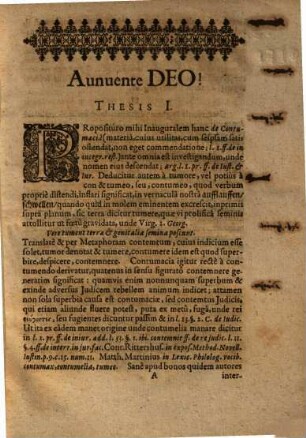 Aunuente DEO!
THESIS I.
PRopositiro mihi Inauguralem hanc de Contu-
maciâ materiâ, cuius utilitas, cum seipsam satis
ostendat, non eget commendatione; l. 1. ff. de in
integr. rest. Ante omnia est investigandum, unde
nomen eius descendat, arg. l. 1. pr. ff. de Just. &
jur. Deducitur autem à tumore, vel potius à
con & tumeo, seu, contumeo, quod verbum
propriè distendi, inflari significat, in vernaculâ nostrâ auffläuffen/
schwellen/ quando quid in molem eminentem excrescit, inprimis
supra planum, sic terra dicitur tumere, quæ vi prolificâ seminis
attollitur ut fœtu gravidata, unde Virg. 2. Georg.
Vere tument terræ & genitalia semina poscunt.
Translatè & per Metaphoram contemtum, cuius indicium esse
solet, tumor denotat & tumere, contumere idem est quod super-
bire, despicere, contemnere. Contumacia igitur rectè à contu-
mendo derivatur, quatenus in sensu figurato contemnere gene-
ratim significat: quamvis enim nonnunquam superbum &
exinde adversus Judicem rebellem animum indicet; attamen
non sola superbia causa est contumaciæ, sed contemtus Judicis,
qui etiam aliunde fluere potest, puta ex metu, fugâ, unde rei
seu fugientes dicuntur passim & in l. 13. §. 2. C. de Judic.
Ut ita ex eâdem manet origine unde contumelia manare dicitur
in l. 1. pr. ff. de injur. add. l. 53. §. 1. ibi contemnit ff. de re judic. l. 11
§. 4. ff. de interr. in jur. fac. Conr. Rittershus. in expos. Method. Novell.
Justin. p. 9. c. 15. num. 11. Matth. Martinius in Lexic. Philolog. vocib.
contumax, contumelia, tumet. Sanè apud bonos quidem autores
A inter-